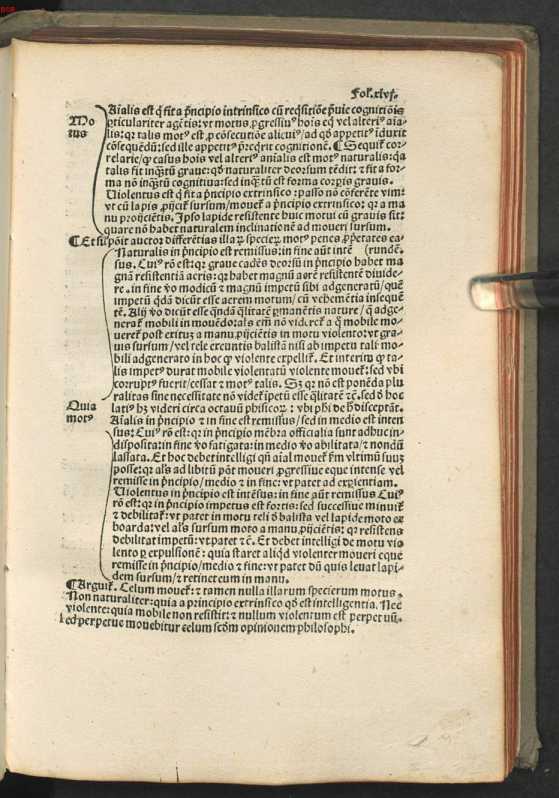 Fol. xlvj.
Aĩalis est q̃ fit a p̃ncipio intrinsico cũ req̃sitiõe p̃uie cognitiõis
Mo
tus
particulariter agẽtis: vt motus ꝓgressiuꝰ hoĩs eq̃ vel alteriꝰ aĩa-
lis: qꝛ talis motꝰ est ꝓ cõsecutiõe alicuiꝰ / ad qð appetitꝰ iduxit
cõsequẽdũ: sed ille appetitꝰ p̃reqrit cognitionẽ. ¶ Sequit̃ cor-
relarie / ꝙ casus hoĩs vel alteriꝰ aniãlis est motꝰ naturalis: q̃a
talis fit inq̃tũ graue: qð naturaliter deorsum tẽdit: ⁊ fit a for-
ma nõ inq̃tũ cognitiua: sed inq̃tũ est forma corpis grauis.
Uiolentus est q̃ fit a p̃ncipio extrinsico: passo nõ cõferẽte vim:
vt cũ lapis ꝓijcit̃ sursum / mouet̃ a p̃ncipio extrinsico: qꝛ a ma
nu proijciẽtis. Ipso lapide resistente huic motui cũ grauis sit:
quare nõ habet naturalem inclinationẽ ad moueri sursum.
¶ Et supõit auctor differẽtias illaꝝ specieꝝ motꝰ penes ꝓp̃etates ea-
Naturalis in p̃ncipio est remissus: in fine aũt intẽ (rundẽ.
sus. Cuiꝰ rõ est: qꝛ graue cadẽs deorsũ in p̃ncipio habet ma
gnã resistentiã aeris: qꝛ habet magnũ aerẽ resistentẽ diuide-
re. in fine ṽo modicũ ⁊ magnũ impetũ sibi adgeneratũ / quẽ
impetũ q̃dã dicũt esse aerem motum / cũ vehemẽtia inseque
tẽ. Alij ṽo dicũt esse q̃ndã q̃litatẽ ꝑmanẽtis nature / q̃ adge-
nerat̃ mobili in mouẽdo: als em̃ nõ videret̃ a q̃ mobile mo-
ueret̃ post exitũ a manu ꝓijciẽtis in motu violento: vt gra-
uis sursum / vel tele exeuntis balistã nisi ab impetu tali mo-
bili adgenerato in hoc ꝙ violente expellit̃. Et interim ꝙ ta-
lis impetꝰ durat mobile violentatũ violente mouet̃: sed vbi
corruptꝰ fuerit / cessat ⁊ motꝰ talis. Sꝫ qꝛ nõ est ponẽda plu
ralitas sine necessitate nõ videt̃ ipetũ esse q̃litatẽ ⁊c̃. sed ð hoc
Quia
motꝰ
latiꝰ hꝫ videri circa octauũ phisicoꝝ: vbi ph̃i de h̃ disceptãt.
Aĩalis in p̃ncipio ⁊ in fine est remissus / sed in medio est inten
sus: Cuiꝰ rõ est: qꝛ in p̃ncipio mẽbra officialia sunt adhuc in-
disposita: in fine ṽo fatigata: in medio ṽo abilitata / ⁊ nondũ
lassata. Et hoc debet intelligi qñ aĩal mouet̃ ẽm vltimũ suuꝫ
posse: qꝛ als ad libitũ põt moueri ꝓgressiue eque intense vel
remisse in p̃ncipio / medio ⁊ in fine: vt patet ad exꝑientiam.
Uiolentus in p̃ncipio est intẽsus: in fine aũt remissus Cuiꝰ
rõ est: qꝛ in p̃ncipio impetus est fortis: sed successiue minuit̃
⁊ debilitat̃: vt patet in motu teli ð balista vel lapide moto ex
boarda: vel als sursum moto a manu ꝓijciẽtis: qꝛ resistens
debilitat impetũ: vt patet ⁊c̃. Et debet intelligi de motu vio
lento ꝑ expulsionẽ: quia staret aliq̃d violenter moueri eque
remisse in p̃ncipio / medio ⁊ fine: vt patet dũ quis leuat lapi-
dem sursum / ⁊ retinet eum in manu.
¶ Arguit̃. Celum mouet̃: ⁊ tamen nulla illarum specierum motus.
Non naturaliter: quia a principio extrinsico qð est intelligentia. Nec
violente: quia mobile non resistit: ⁊ nullum violentum est perpetuũ.
sed perpetue mouebitur celum scðm opinionem philosophi.